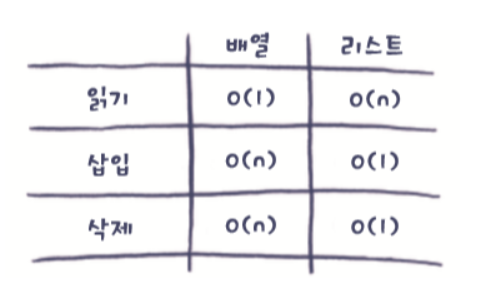 배열 리스트
읽기 O(1) O(n)
삽입 O(n) O(1)
삭제 O(n) O(1)